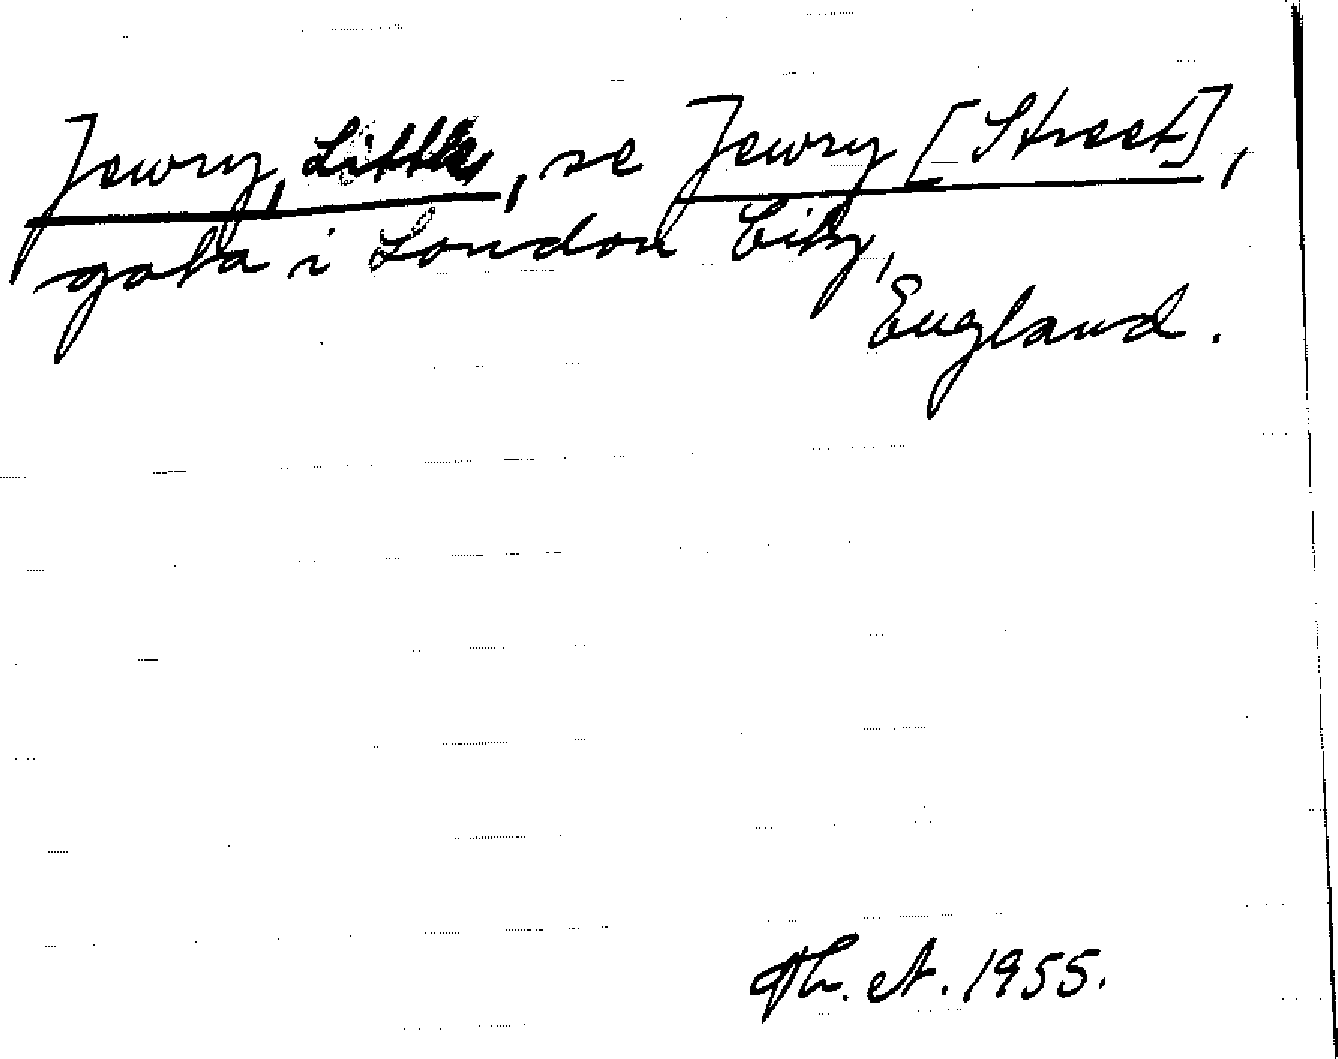 Jewry, Little, se Jewry [Street],
gata i London City,
England.
Th. A. 1955.